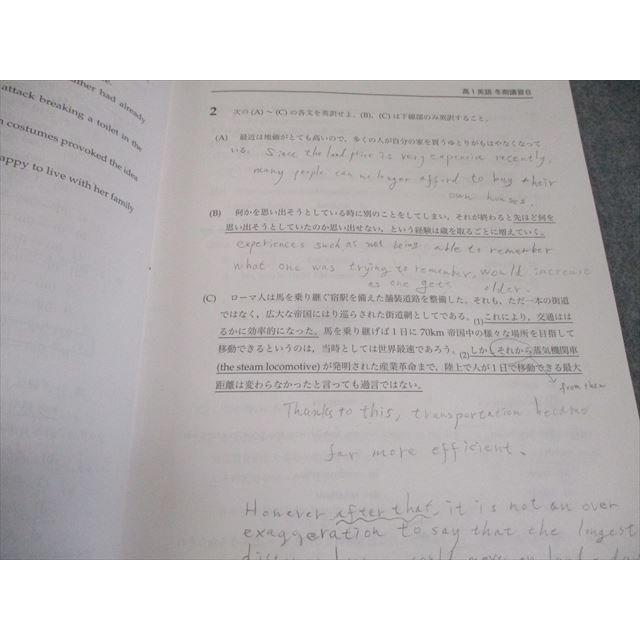 ther had already
attack breaking a toilet in the
costumes provoked the idea
appy to live with her family
高1英語 冬期講習B
2 次の (A) ～ (C) の各文を英訳せよ。(B), (C) は下線部のみ英訳すること。
(A) 最近は地価がとても高いので，多くの人が自分の家を買うゆとりがもはやなくなって
いる。 Since the land price is very expencive recently,
many people can no longer afford to buy their
own houses.
(B) 何かを思い出そうとしている時に別のことをしてしまい，それが終わると先ほど何を
思い出そうとしていたのか思い出せない，という経験は歳を取るごとに増えていく。
experiences such as not being able to remember
what one was trying to remember, would increase
as one gets older.
(C) ローマ人は馬を乗り継ぐ宿駅を備えた舗装道路を整備した。それも，ただ一本の街道
ではなく，広大な帝国にはり巡らされた街道網としてである。(1)これにより，交通はは
るかに効率的になった。馬を乗り継げば1日に70km 帝国中の様々な場所を目指して
移動できるというのは，当時としては世界最速であろう。(2)しかしそれから蒸気機関車
(the steam locomotive) が発明された産業革命まで，陸上で人が1日で移動できる最大
距離は変わらなかったと言っても過言ではない。
from then
Thanks to this, transportation became
far more efficient.
However after that, it is not an over
exaggeration to say that the longest